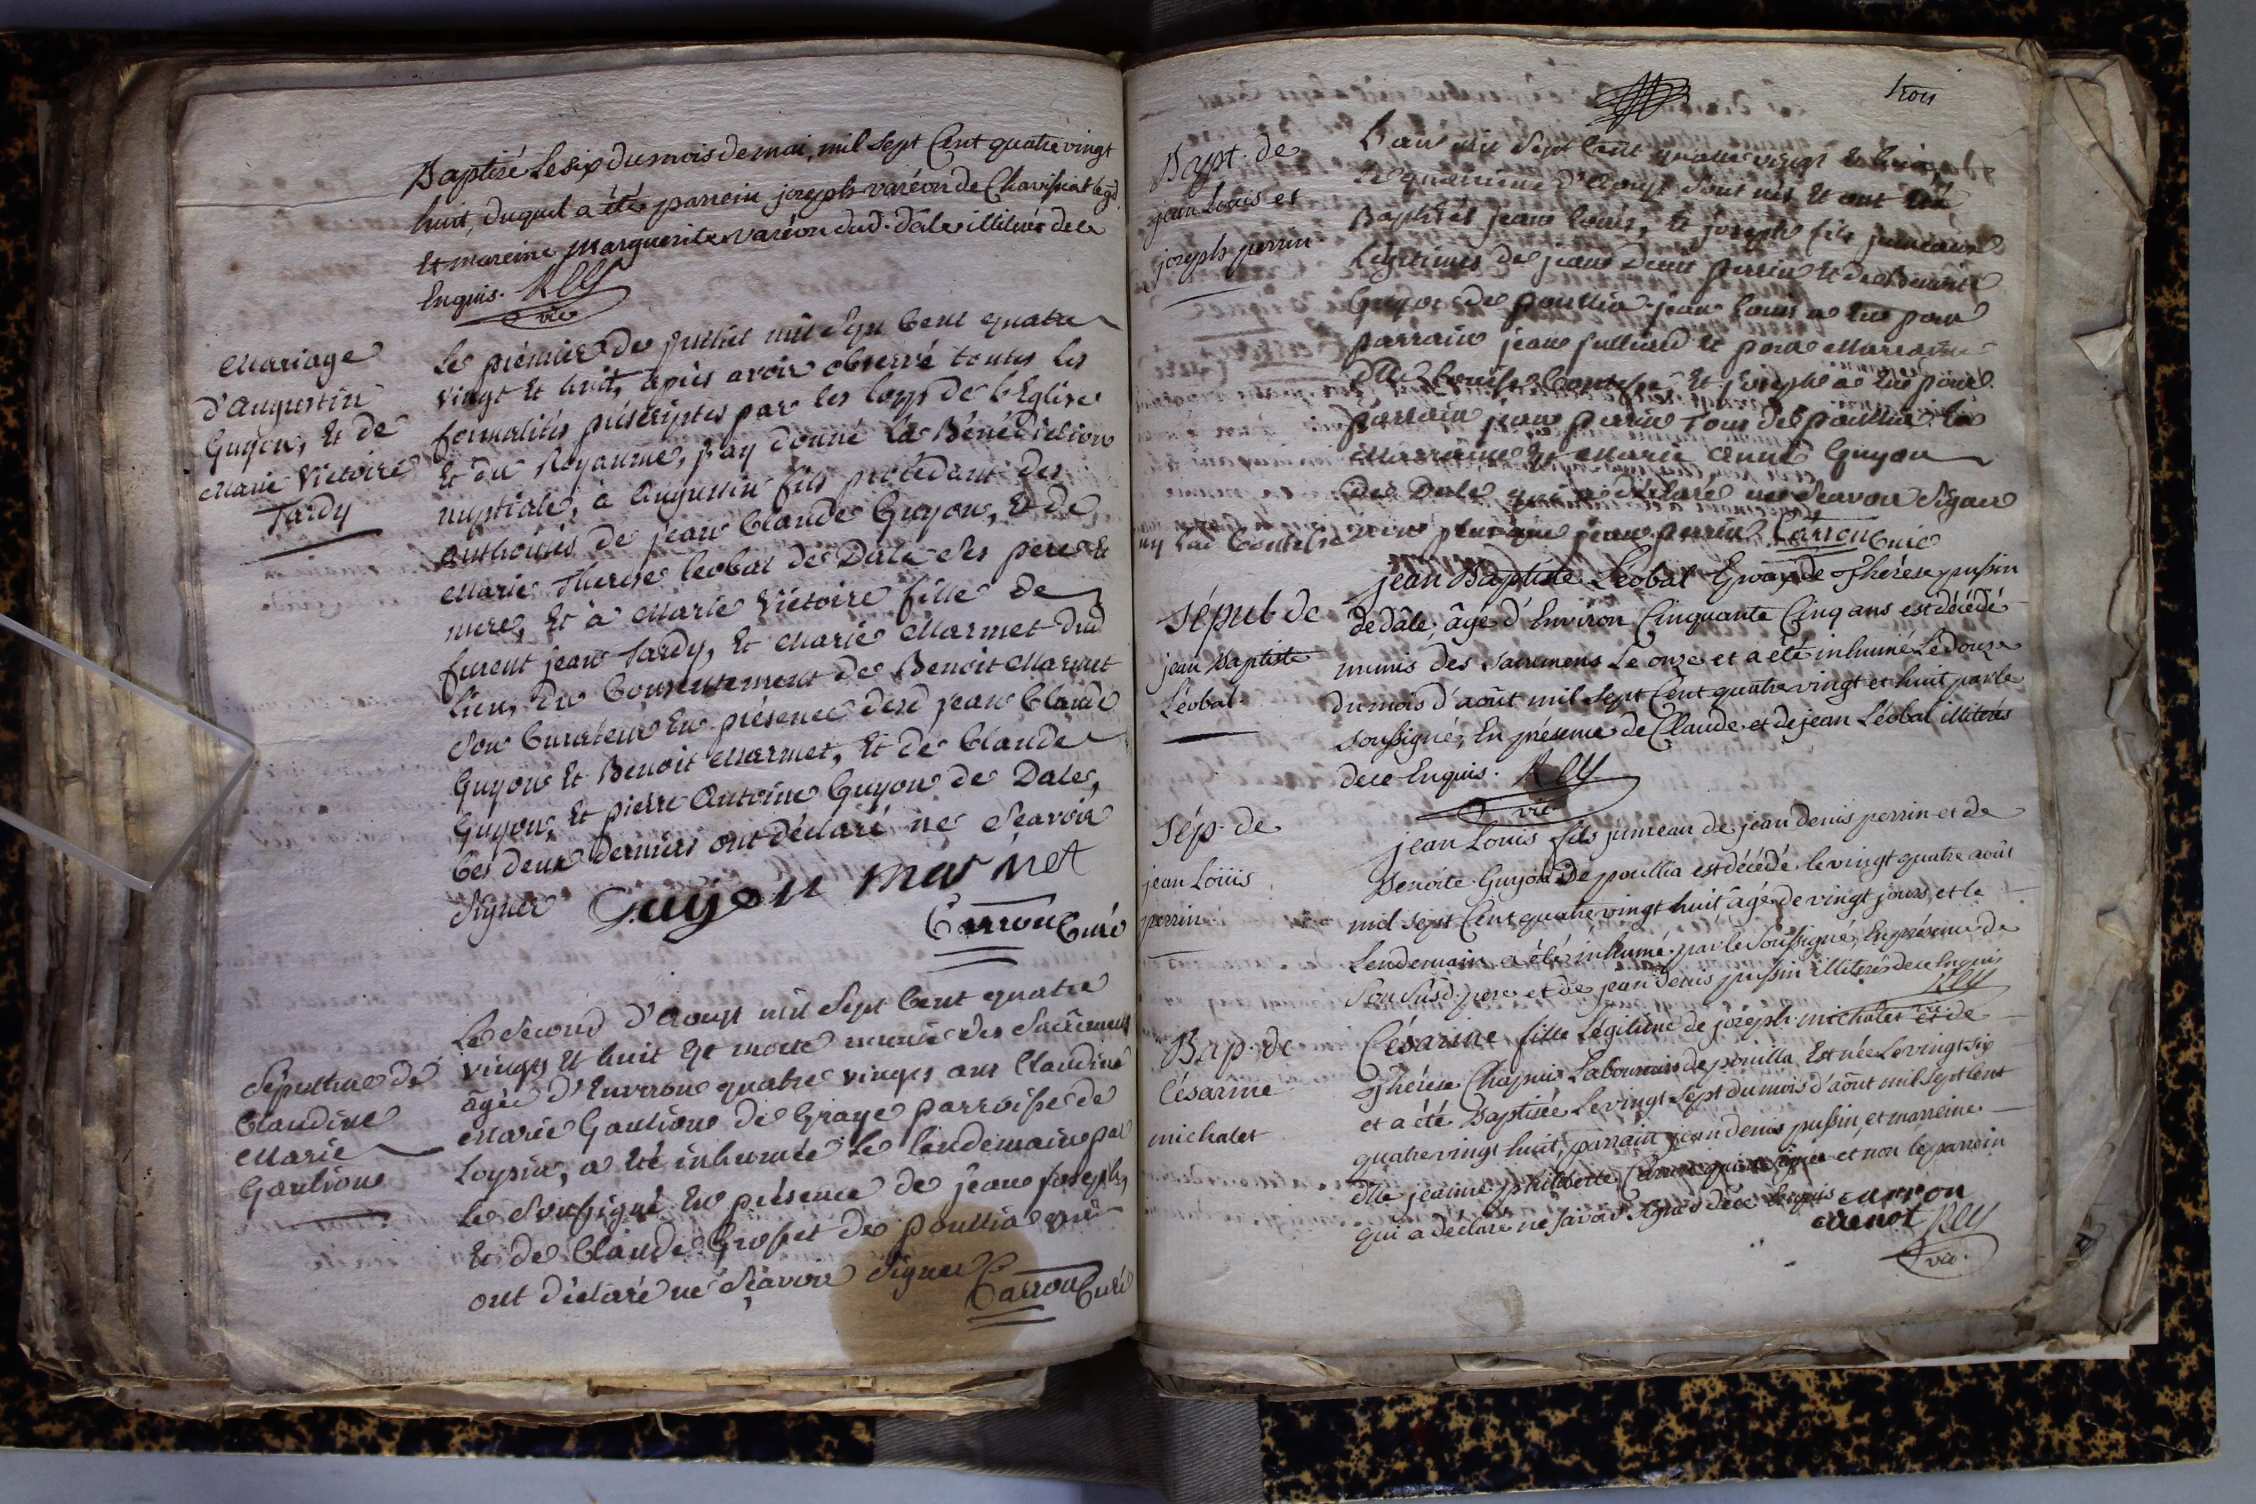 Baptisé Le six du mois de mai, mil sept Cent quatre vingt
huit, duquel a été parrein joseph varéon de Chavissiat le gd
Et mareine Marguerite varéon dud. dâle illiterés de ce
Enquis. Rey
vic
Mariage
d'Augustin
Guyon, Et de
Marie Victoire
Tardy
Le prémier de Juillet mil Sept Cent quatre
vingt Et huit, après avoir observé toutes les
formalités préscriptes par les loys de l'Eglise
Et du Royaume, j'ay donné la Bénédiction
nuptiale, à Augustin fils procédant des
authorités de jean Claude Guyon, Et de
Marie Therese leobal de Dale ses pere Et
mere, Et à Marie Victoire fille de
furent jean Tardy, Et Marie Marmet dud
lieu, du Consentement de Benoit Marmet
Son Curateur En présence desd jean Claude
Guyon Et Benoit Marmet, Et de Claude
Guyon, Et pierre Antoine Guyon de Dale,
Ces deux derniers ont déclaré ne Sçavoir
Signer Guyon Marmet
Carron Curé
Sépulture de
Claudine
Marie
Gaulion
Le Second d'Aoust mil Sept Cent quatre
vingts Et huit Est morte munie des Sacremens
âgée d'Environ quatre vingts ans Claudine
Marie Gaulion de Graye parroisse de
Loysia, a été inhumée le lendemain par
le Soussigné En présence de jean joseph,
Et de Claude Grosset de poullia qui
ont déclaré ne Sçavoir Signer
Carron Curé
trois
Bapt. de
jean Louis et
joseph perrin
L'an mil Sept Cent quatre vingt Et huit,
Le quatrième d'Aoust Sont nés Et ont été
Baptisés jean Louis, Et joseph fils jumeaux
Légitimes de jean Denis perrin Et de Benoite
Guyon de poullia. jean Louis a Eu pour
parrain jean julliard Et pour Marraine
Dlle Louise Et joseph a Eu pour
parrain jean perrin Tous de poullia. La
Marraine Est Marie Anne Guyon
de Dale qui a déclaré ne Sçavoir Signer
non plus que jean perrin Carron Curé
Sépul de
jean Baptiste
Léobal
jean Baptiste Léobal Epoux de Thérèse pussin
de dâle, âgé d'Environ Cinquante Cinq ans est décédé
munis des sacremens Le onze et a été inhumé Le douze
du mois d'août mil sept Cent quatre vingt et huit par le
soussigné, En présence de Claude et de jean Léobal illiterés
de ce Enquis. Rey
vic
Sép. de
jean Loüis
perrin
jean Louis fils jumeau de jean denis perrin et de
Benoite Guyon De poullia est décédé le vingt quatre août
mil sept Cent quatre vingt huit âgé de vingt jours, et le
Lendemain a été inhumé par le Soussigné, En présence de
Son Susd. pere et de jean denis pussin illiterés de ce Enquis
Rey
vic
Bap. de
Césarine
michalet
Césarine fille Légitime de joseph michalet et de
Thérèse Chapuis Laboureurs de pouilla Est née Le vingt six
et a été Baptisée Le vingt sept du mois d'août mil sept Cent
quatre vingt huit, parrain jean denis pussin, et marreine
dlle jeanne philiberte et non le parrein
qui a déclaré ne savoir signer de ce Enquis carron
Rey
vic.